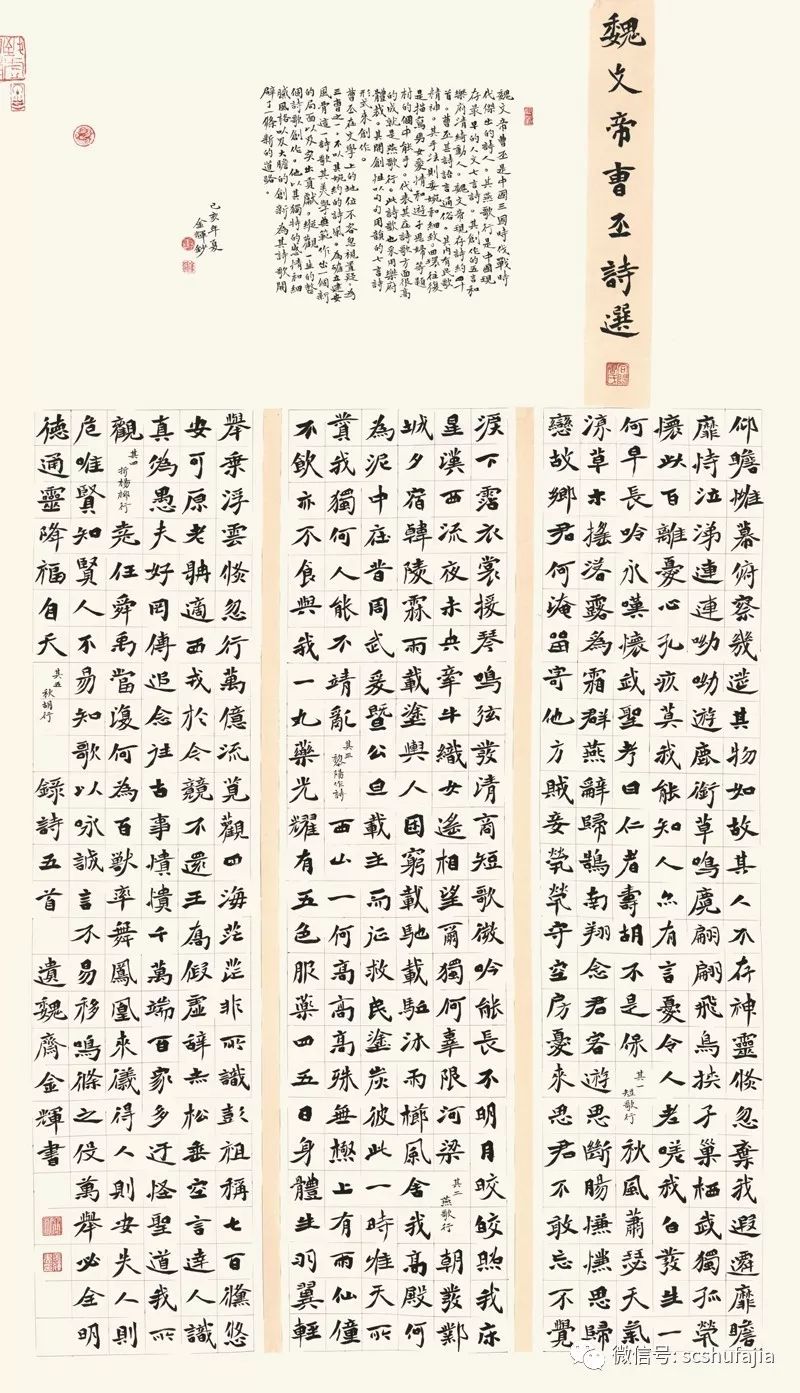 魏文帝曹丕詩選
魏文帝曹丕是中國三國時伐戰時
代傑出的詩人。其燕歌行是中國現
存最早的人文七言詩。其創作的五言和
樂府清綺動人。魏文帝現存詩約四十
首。曹丕其詩語言通俗。其内有民歌
精神。其手法則委婉和細致。回環往復
是描寫男女愛情和遊子思婦等題
材的個中能手。代表其在詩歌方面很高
的成就是燕歌行。此詩歌也采用樂府
體裁。其開創性以句句用韻的七言詩
形式來創作。
曹丕在文學上的地位不容忽視置疑。為
三曹之一。不以其婉約的詩風。為確立建安
風骨這一詩歌其美學典範作出一個新
的局面以及突出貢獻。縱觀一生的
個詩歌創作。他以其獨特的感情和細
膩風格以及大膽的創新。為其詩歌開
辟了一條新的道路。
己亥年夏
金輝鈔
仰瞻帷幕俯察幾筵其物如故其人不存神靈倏忽棄我遐遷靡瞻
靡恃泣涕連連呦呦遊鹿銜草鳴麑翩翩飛鳥挾子巢栖我獨孤煢
懷此百離憂心孔疚莫我能知人亦有言憂令人老嗟我白發生一
何早長吟永嘆懷我聖考曰仁者壽胡不是保 其一 短歌行 秋風蕭瑟天氣
涼草木搖落露為霜群燕辭歸鵠南翔念君客遊思斷腸慊慊思歸
戀故鄉君何淹留寄他方賤妾煢煢守空房憂來思君不敢忘不覺
淚下霑衣裳援琴鳴弦發清商短歌微吟能長不明月皎皎照我床
星漢西流夜未央牽牛織女遙相望爾獨何辜限河梁 其二 燕歌行 朝發鄴
城夕宿韓陵霖雨載塗輿人困窮載馳載驅沐雨櫛風舍我高殿何
為泥中在昔周武爰暨公旦載主而征救民塗炭彼此一時惟天所
賞我獨何人能不靖亂 其三 黎陽作詩 西山一何高高高殊無極上有兩仙僮
不飲亦不食與我一丸藥光耀有五色服藥四五日身體生羽翼輕
舉乘浮雲倏忽行萬億流覽觀四海茫茫非所識彭祖稱七百悠悠
安可原老聃適西戎於今競不還王喬假虛辭赤松垂空言達人識
真偽愚夫好罔傳追念往古事憒憒千萬端百家多迂怪聖道我所
觀 其四 折楊柳行 堯任舜禹當復何為百獸率舞鳳凰來儀得人則安失人則
危唯賢知賢人不易知歌以咏誠言不易移鳴條之役萬舉必全明
德通靈降福自天 其五 秋胡行 錄詩五首 遺魏齊金輝書
微信号: scshufajia